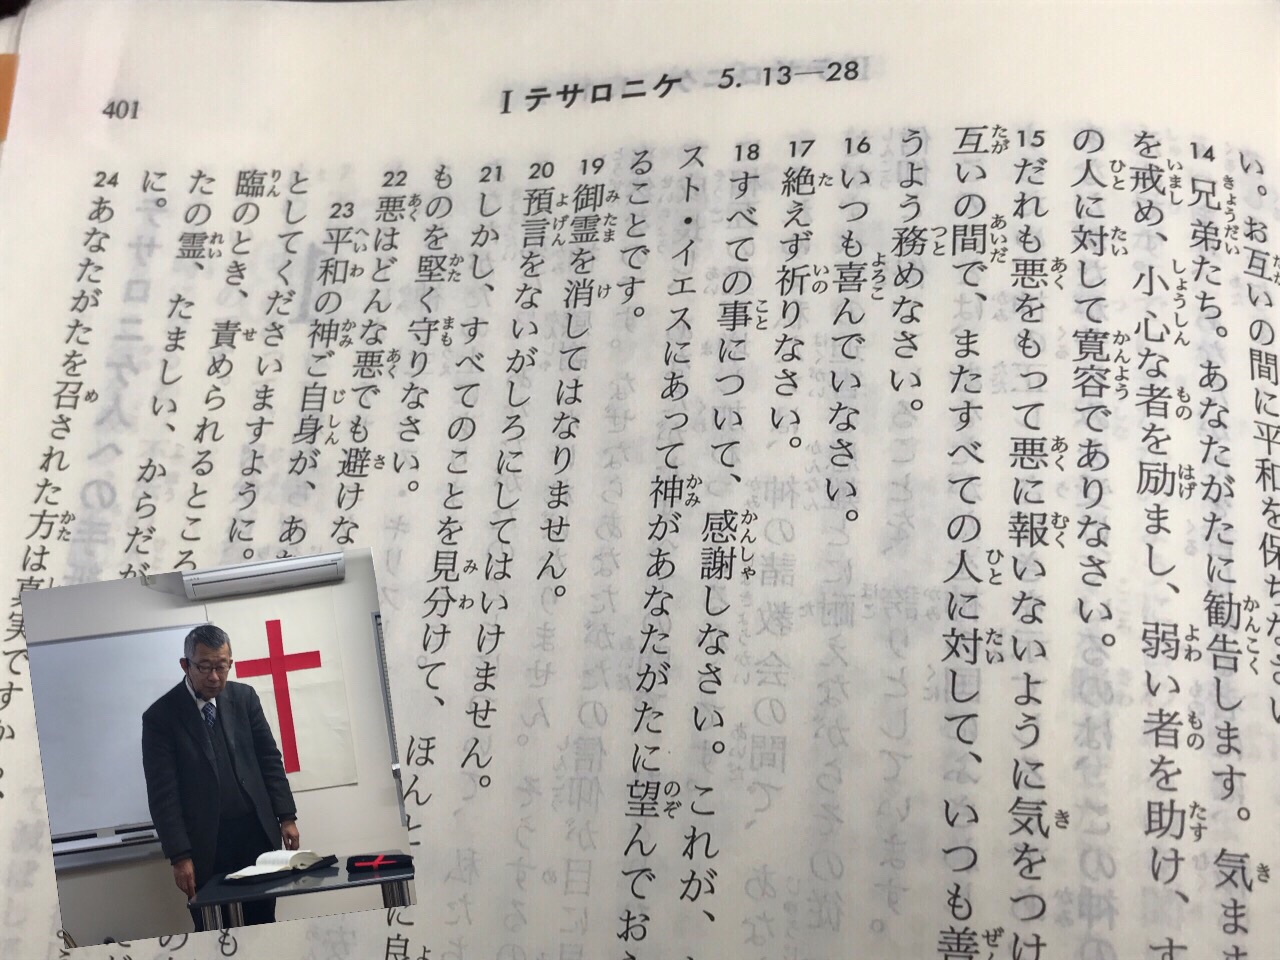 401
I テサロニケ 5. 13—28
い。お互いの間に平和を保ちなさい
14 兄弟たち。あなたがたに勧告します。気まま
を戒め、小心な者を励まし、弱い者を助け、す
の人に対して寛容でありなさい。
15 だれも悪をもって悪に報いないように気をつけ
互いの間で、またすべての人に対して、いつも善
うよう務めなさい。
16 いつも喜んでいなさい。
17 絶えず祈りなさい。
18 すべての事について、感謝しなさい。これが、
スト・イエスにあって神があなたがたに望んでお
ることです。
19 御霊を消してはなりません。
20 預言をないがしろにしてはいけません。
21 しかし、すべてのことを見分けて、ほんと に良
ものを堅く守りなさい。
22 悪はどんな悪でも避けな
23 平和の神ご自身が、あ
としてくださいますように。
臨のとき、責められるところ
たの霊、たましい、からだが
に。
24 あなたがたを召された方は真実ですか